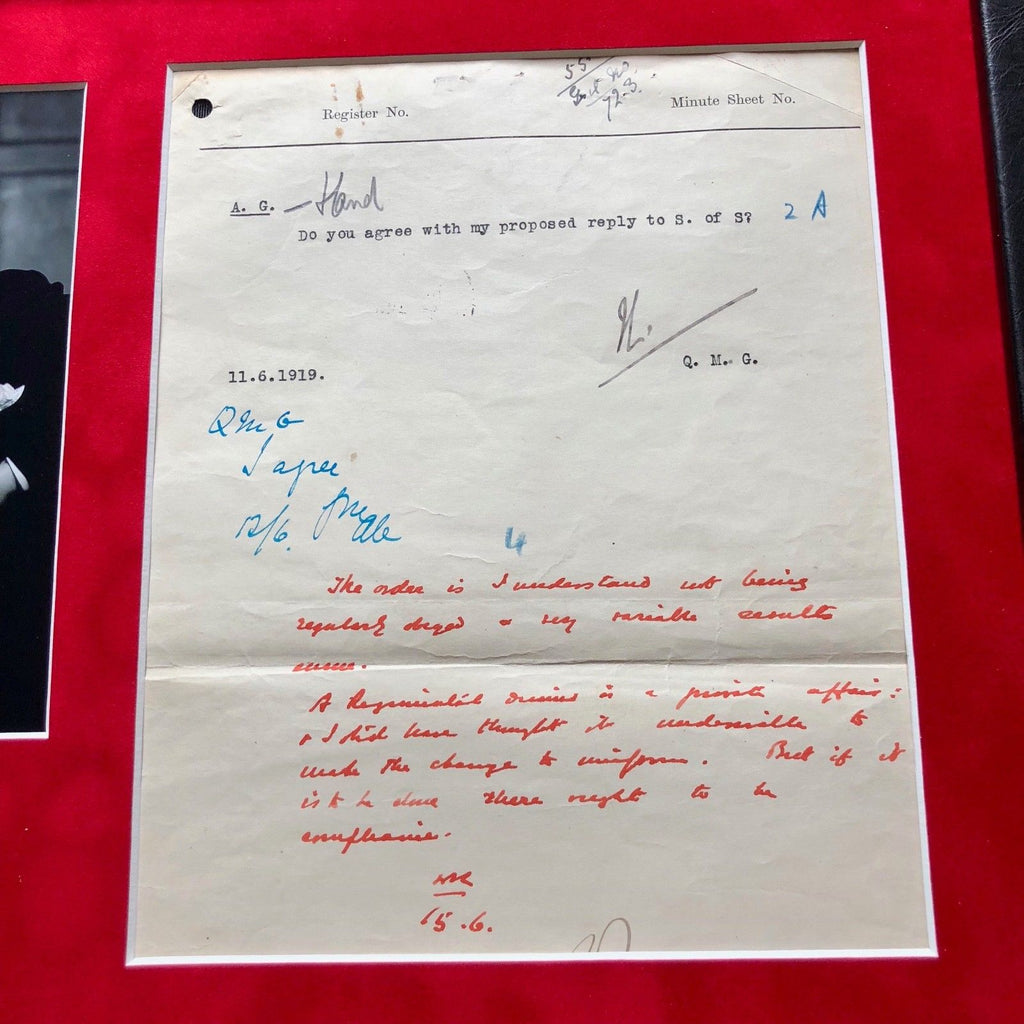 55
Register No.
Minute Sheet No.
A. G. - Hand
Do you agree with my proposed reply to S. of S? 2 A
Q. M. G.
11.6.1919.
QMG
I agree
12/6.
4
The order is I understand not being
regularly obeyed & very variable results
ensue.
A Regimental dinner is a private affair:
& I shd have thought it undesirable to
make the change to uniform. But if it
is to be done there ought to be
compliance.
15.6.